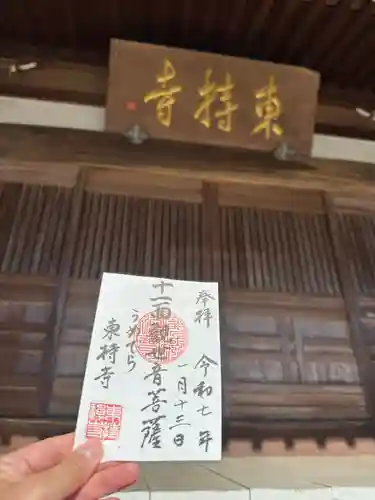 東持寺
奉拝 令和七年
一月十三日
十一面観世音菩薩
うめでら
東持寺